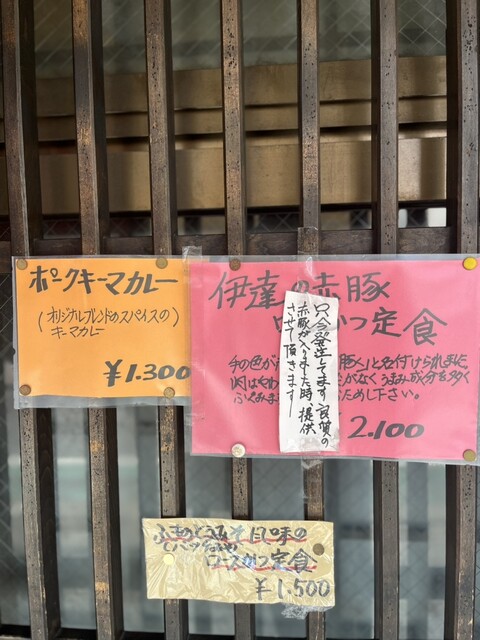 ポークキーマカレー
(オリジナルブレンドのスパイスの)
キーマカレー
¥1.300
伊達の赤豚
ロースかつ定食
毛の色が
豚く」と名付けられました
がなくうまみ成分を多く
ためし下さい。
2.100
只今発注してます良質の
赤豚が入りました時、提供
させて頂きます
ふきのとうみそ風味の
ロースかつ定食
¥1.500